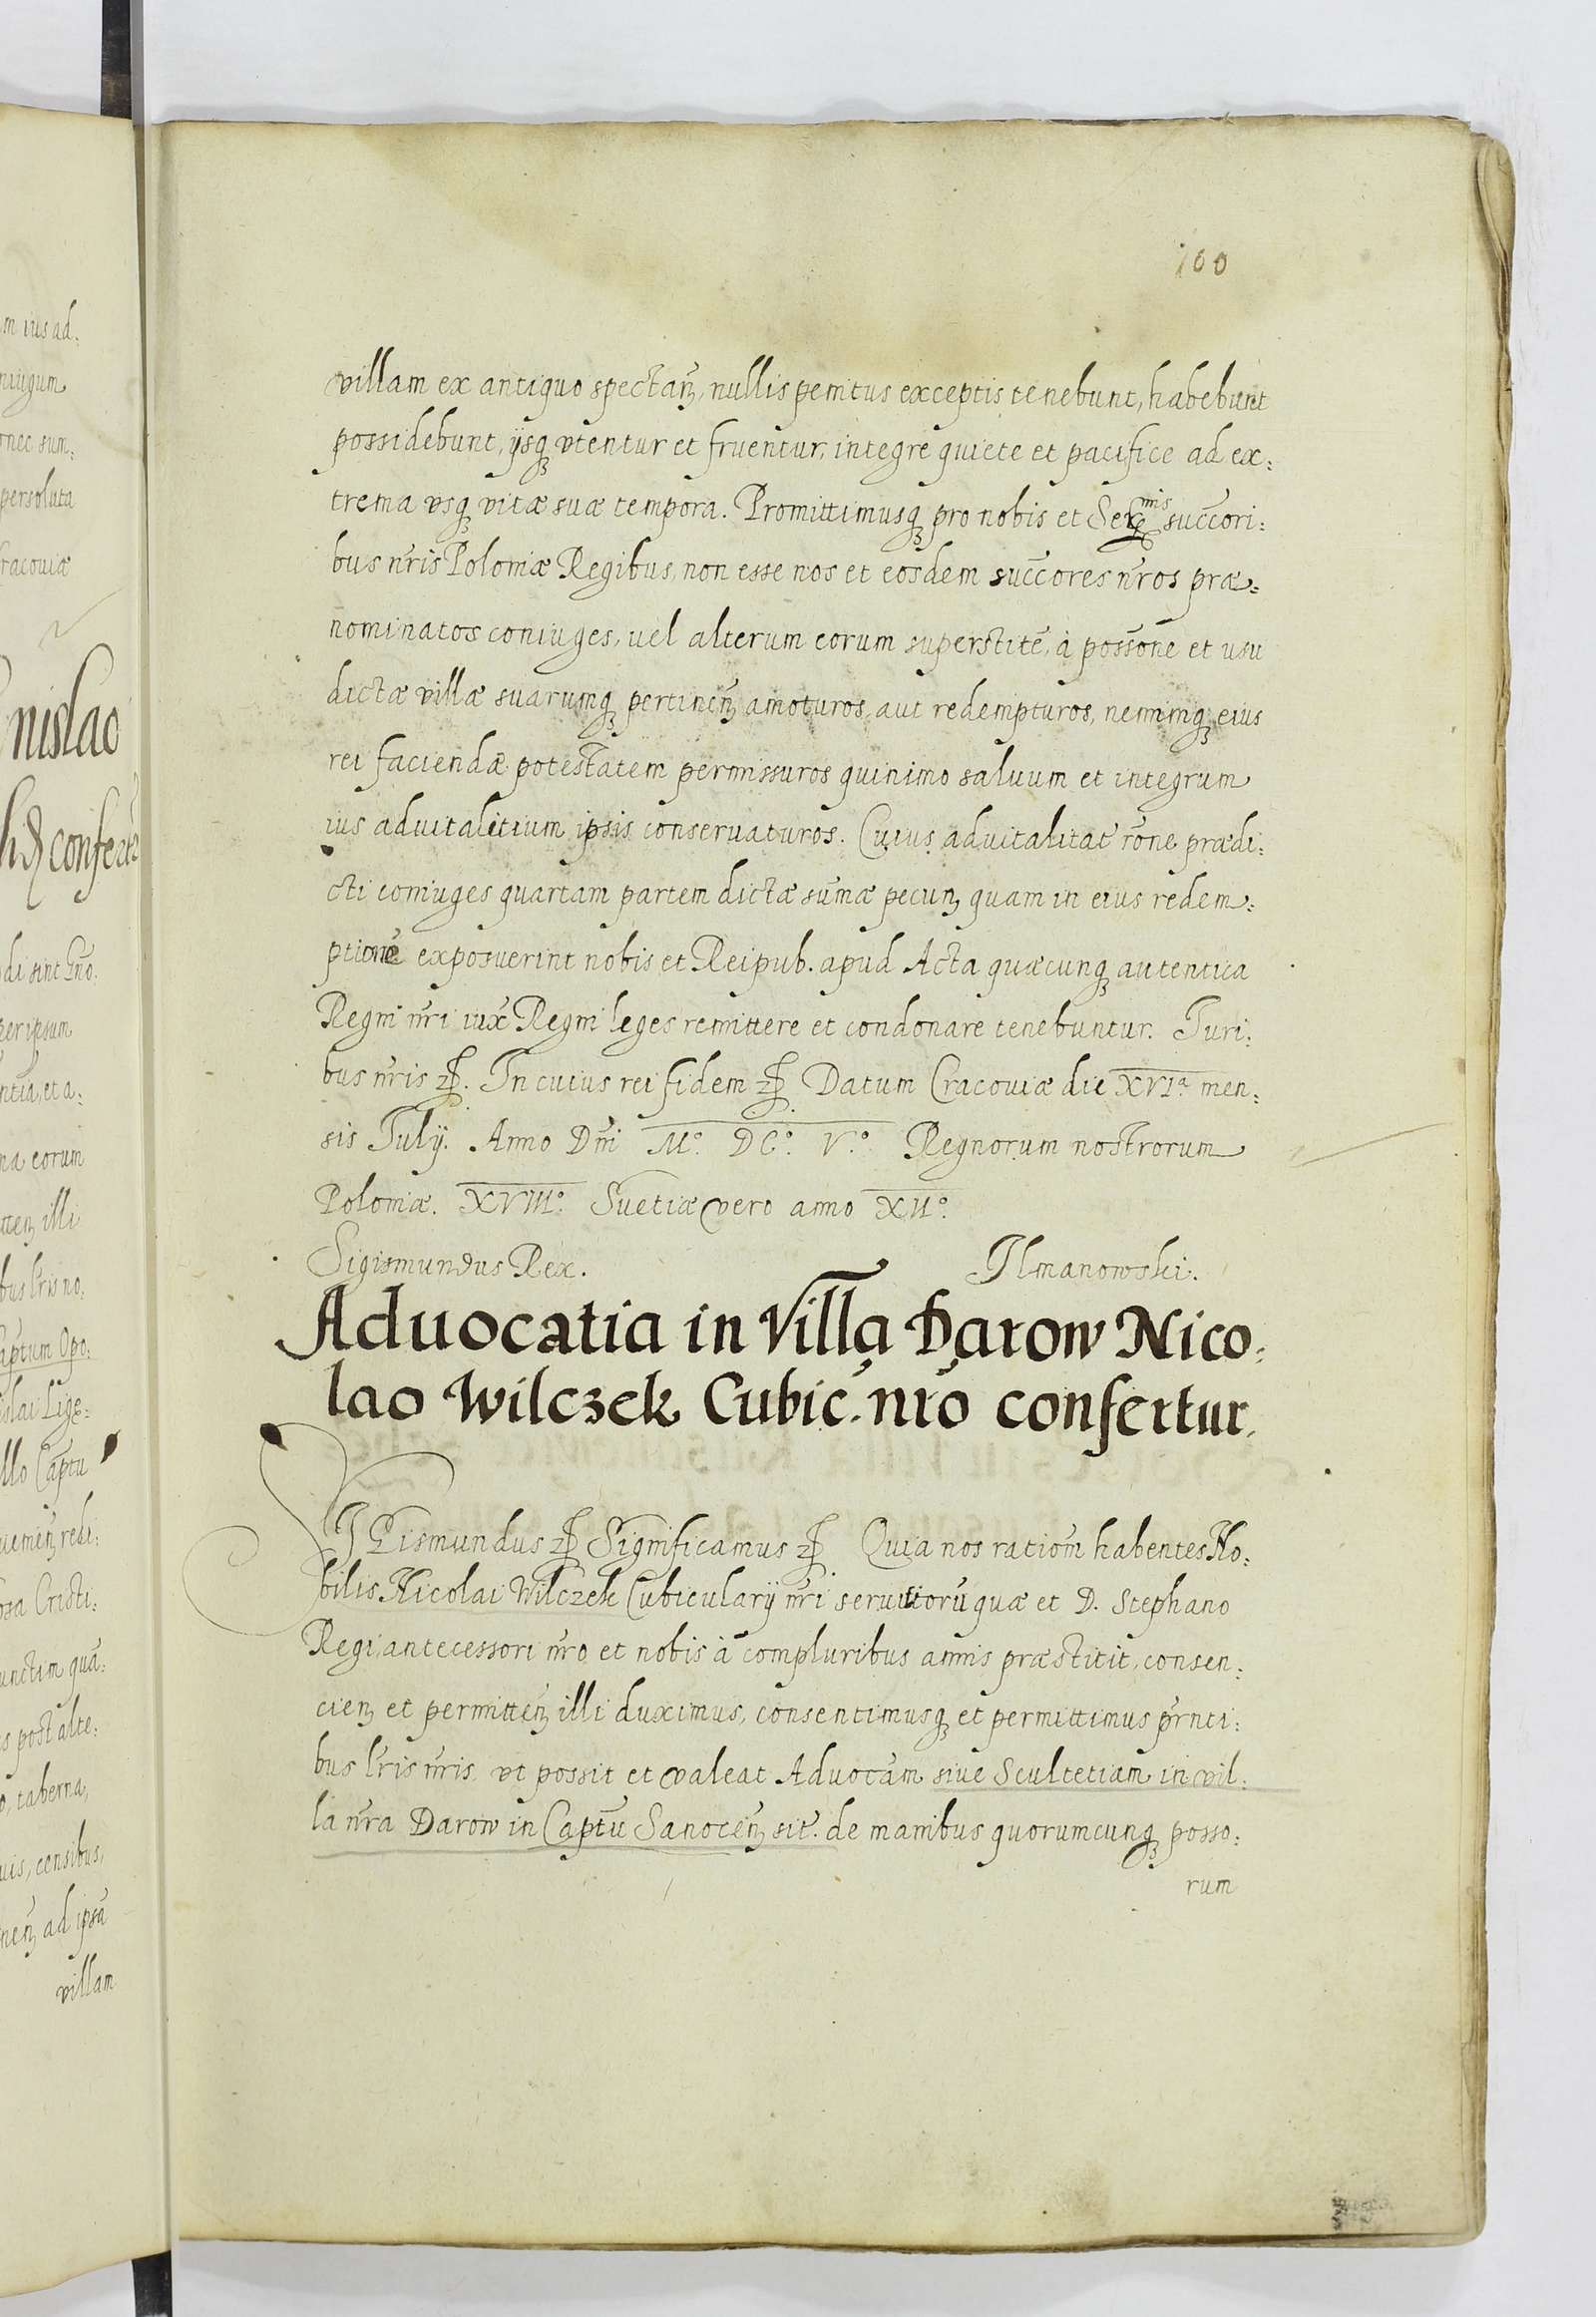 100
villam ex antiquo spectan̄ꝫ, nullis penitus exceptis tenebunt, habebunt
possidebunt, ijsqꝫ vtentur et fruentur, integre quiete et pacifice ad ex:
trema vsqꝫ vitæ suæ tempora. Promittimusqꝫ pro nobis et Ser^mis succori:
bus nr̄is Poloniæ Regibus, non esse nos et eosdem succ̄ores nr̄os præ:
nominatos coniuges, uel alterum eorum superstitē, à possōne et usu
dictæ villæ suarumqꝫ pertinen̄ꝫ amoturos, aut redempturos, neminiqꝫ eius
rei faciendæ potestatem permissuros quinimo saluum et integrum
ius aduitalitium ipsis conseruaturos. Cuius aduitalitat̄ rōne prædi:
cti coniuges quartam partem dictæ sūmæ pecunꝫ quam in eius redem:
ptionē exposuerint nobis et Reipub. apud Acta quæcunqꝫ autentica
Regni nr̄i iux̄ Regni leges remittere et condonare tenebuntur. Iuri:
bus nr̄is ꝛc̄. In cuius rei fidem ꝛc̄ Datum Cracouiæ die XVIª men:
sis Iulij. Anno Dn̄i M.º DC.º V.º Regnorum nostrorum
Poloniæ. XVIIIº. Suetiæ vero anno XIIº.
Sigismundus Rex. Ilmanowski.
Aduocatia in Villa Darow Nico:
lao Wilczek Cubic̄. nr̄o confertur.
SIGismundus ꝛc̄ Significamus ꝛc̄. Quia nos ration̄m habentes No:
bilis Nicolai Wilczek Cubicularij nr̄i seruitiorū quæ et D. Stephano
Regi, antecessori nr̄o et nobis à compluribus annis præstitit, consen:
cienꝫ et permitten̄ꝫ illi duximus, consentimusqꝫ et permittimus pr̄nti:
bus lr̄is nr̄is, vt possit et valeat Aduocām siue Scultetiam in vil:
la nr̄a Darow in Captū Sanocen̄ꝫ sit̄. de manibus quorumcunqꝫ posso:
rum